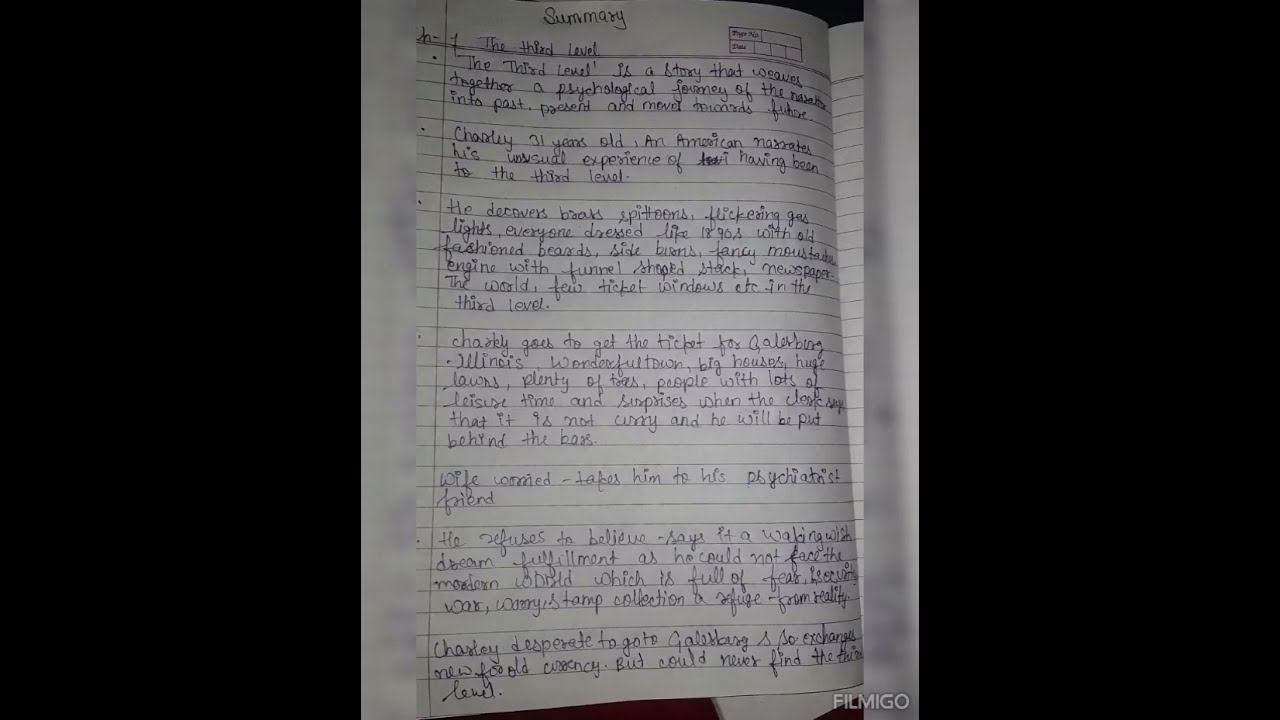 Summary
Page No.
Date
Ch- 1 The third Level
• 'The Third Level' is a story that weaves
together a psychological journey of the narrator
into past, present and moves towards future.
• Charley 31 years old, An American narrates
his unusual experience of having been
to the third level.
• He decovers brass spittoons, flickering gas
lights, everyone dressed like 1890s with old
fashioned beards, side burns, fancy moustache
engine with funnel shaped stack, newspaper-
The world, few ticket windows etc. in the
third level.
• Charley goes to get the ticket for Galesburg
Illinois, wonderful town, big houses, huge
lawns, plenty of trees, people with lots of
leisure time and surprises when the clerk says
that it is not curry and he will be put
behind the bars.
Wife worried - takes him to his psychiatrist
friend
• He refuses to believe - says it a waking wish
dream fulfillment as he could not face the
modern world which is full of fear, insecurity
war, worry, stamp collection a refuge from reality.
Charley desperate to go to Galesburg & so exchanges
new for old currency. But could never find the third
level.
FILMIGO